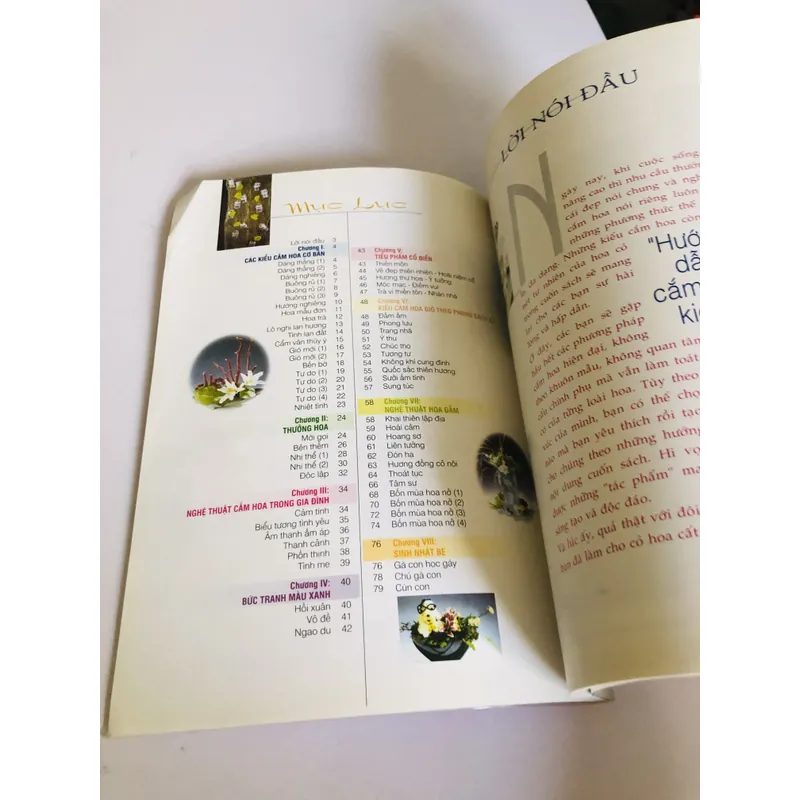 Mục Lục
Lời nói đầu 3
Chương I: 4
CÁC KIỂU CẮM HOA CƠ BẢN
Dáng thẳng (1) 4
Dáng thẳng (2) 5
Dáng nghiêng 6
Buông rủ (1) 7
Buông rủ (2) 8
Buông rủ (3) 9
Hướng nghiêng 10
Hoa mẫu đơn 11
Hoa trà 12
Lô nghi lan hương 13
Tinh lan đất 14
Cẩm vân thủy ý 15
Gió mới (1) 16
Gió mới (2) 17
Bên bờ 18
Tự do (1) 19
Tự do (2) 20
Tự do (3) 21
Tự do (4) 22
Nhiệt tình 23
Chương II: 24
THƯỞNG HOA
Mời gọi 24
Bên thềm 26
Nhị thể (1) 28
Nhị thể (2) 30
Độc lập 32
Chương III: 34
NGHỆ THUẬT CẮM HOA TRONG GIA ĐÌNH
Cảm tình 34
Biểu tượng tình yêu 35
Âm thanh ấm áp 36
Thanh cảnh 37
Phồn thịnh 38
Tình mẹ 39
Chương IV: 40
BỨC TRANH MÀU XANH
Hồi xuân 40
Vô đề 41
Ngao du 42
43 Chương V:
TIỂU PHẨM CỔ BIỂN
43 Thiền môn
44 Vẻ đẹp thiên nhiên - Hoài niệm cổ
45 Hương thu hoa - Ý tưởng
46 Mộc mạc - Điểm vui
47 Trà vị thiền tôn - Nhàn nhã
48 Chương VI:
KIỂU CẮM HOA GIỎ THEO PHONG CÁCH
48 Đầm ấm
49 Phong lưu
50 Trang nhã
51 Ý thu
52 Chúc thọ
53 Tương tư
54 Không khí cung đình
55 Quốc sắc thiên hương
56 Sưởi ấm tình
57 Sung túc
58 Chương VII:
NGHỆ THUẬT HOA GẤM
58 Khai thiên lập địa
59 Hoài cảm
60 Hoang sơ
61 Liên tưởng
62 Đón hạ
63 Hương đồng cỏ nội
64 Thoát tục
66 Tâm sự
68 Bốn mùa hoa nở (1)
70 Bốn mùa hoa nở (2)
72 Bốn mùa hoa nở (3)
74 Bốn mùa hoa nở (4)
76 Chương VIII:
SINH NHẬT BÉ
76 Gà con học gáy
78 Chú gà con
79 Cún con
LỜI NÓI ĐẦU
Ngày nay, khi cuộc sống
nâng cao thì nhu cầu thưởn
cái đẹp nói chung và ngh
cắm hoa nói riêng luôn
những phương thức thể
đa dạng. Những kiểu cắm hoa côn
nét tự nhiên của hoa cỏ
trong cuốn sách sẽ mang
lại cho các bạn sự hài
lòng và hấp dẫn.
"Hướ
dẫ
cắm
kiể
Ở đây, các bạn sẽ gặp
hầu hết các phương pháp
cắm hoa hiện đại, không
theo khuôn mẫu, không quan tâm
cầu chính phụ mà vẫn làm toát
có của từng loài hoa. Tùy theo
xúc của mình, bạn có thể chọ
nào mà bạn yêu thích rồi tạo
cho chúng theo những hướng
nội dung cuốn sách. Hi vọ
được những "tác phẩm" ma
sáng tạo và độc đáo.
Và lúc ấy, quả thật với đôi
bạn đã làm cho cỏ hoa cất